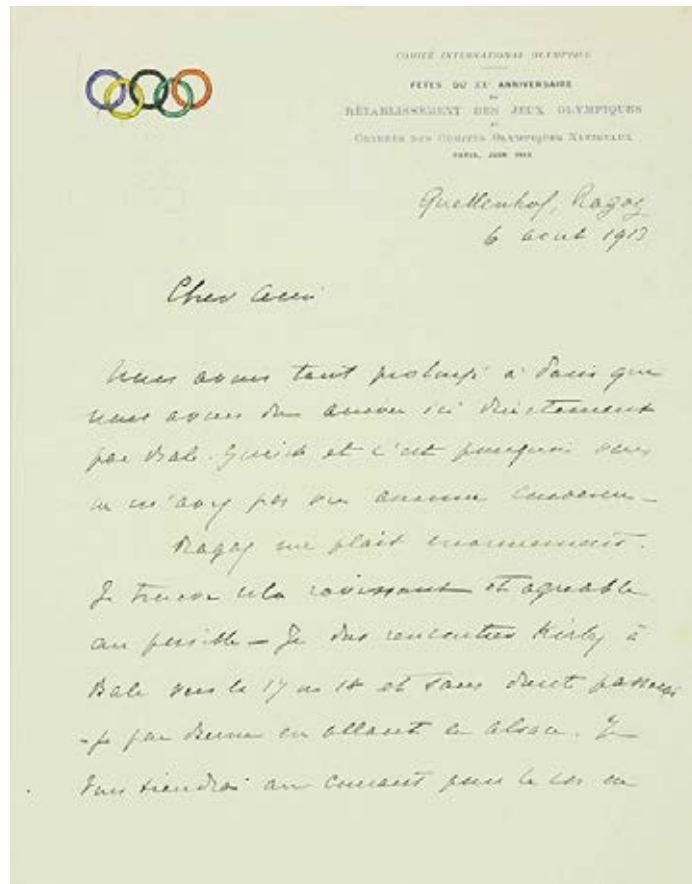 COMITÉ INTERNATIONAL OLYMPIQUE
FÊTES DU XXe ANNIVERSAIRE
DU
RÉTABLISSEMENT DES JEUX OLYMPIQUES
ET
CONGRÈS DES COMITÉS OLYMPIQUES NATIONAUX
PARIS, JUIN 1914
Quellenhof, Ragaz
6 aout 1913
Cher Ami
Nous avons tant prolongé à Paris que
nous avons du arriver ici directement
par Bale. Zurich et c'est pourquoi vous
ne m'avez pas vu
Ragaz me plait enormement.
Je trouve cela ravissant et agreable
au possible – Je dois rencontrer Kirby à
Bale vers le 17 ou 18 et sans doute passerai
-je par Berne en allant en Alsace. Je
vous tiendrai au courant pour le cas ou